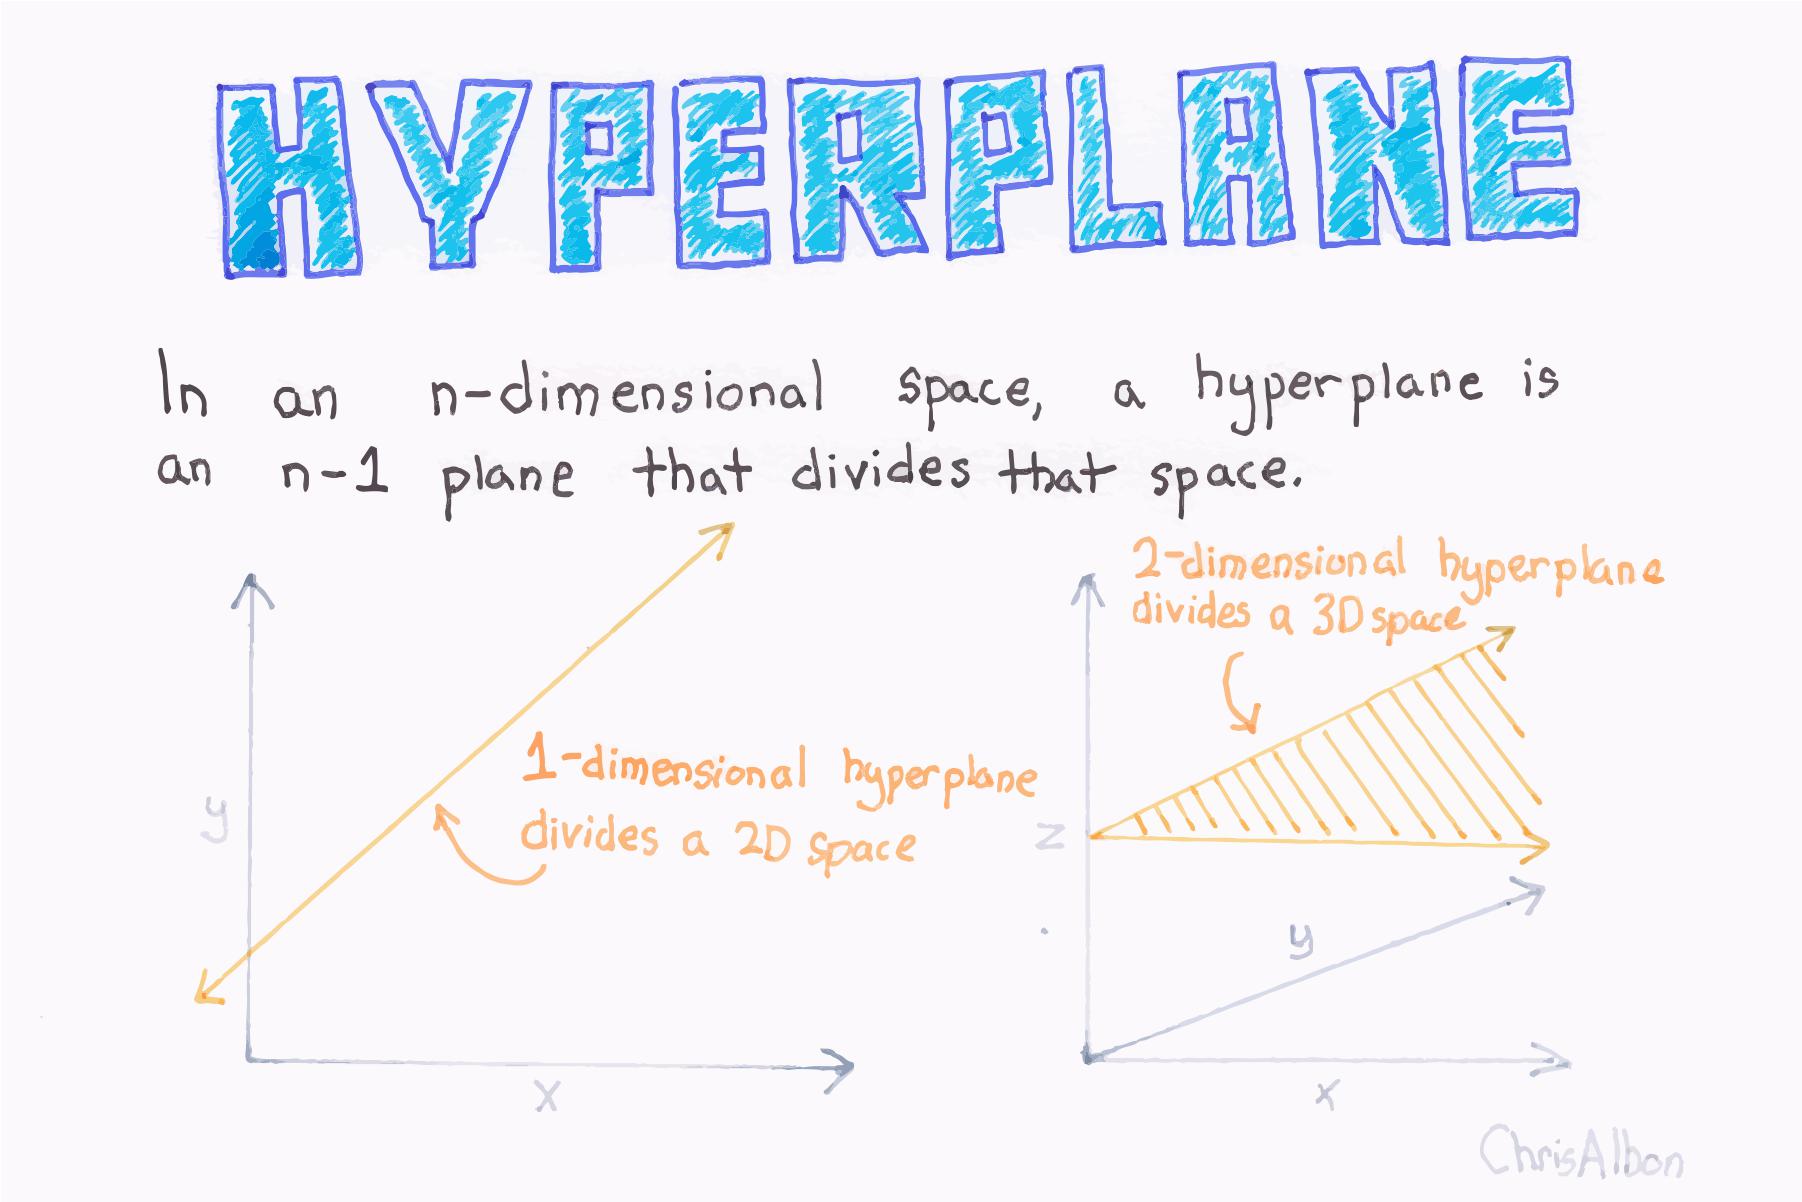 HYPERPLANE
In an n-dimensional space, a hyperplane is
an n-1 plane that divides that space.
1-dimensional hyperplane
divides a 2D space
y
x
2-dimensional hyperplane
divides a 3D space
z
y
x
ChrisAlbon